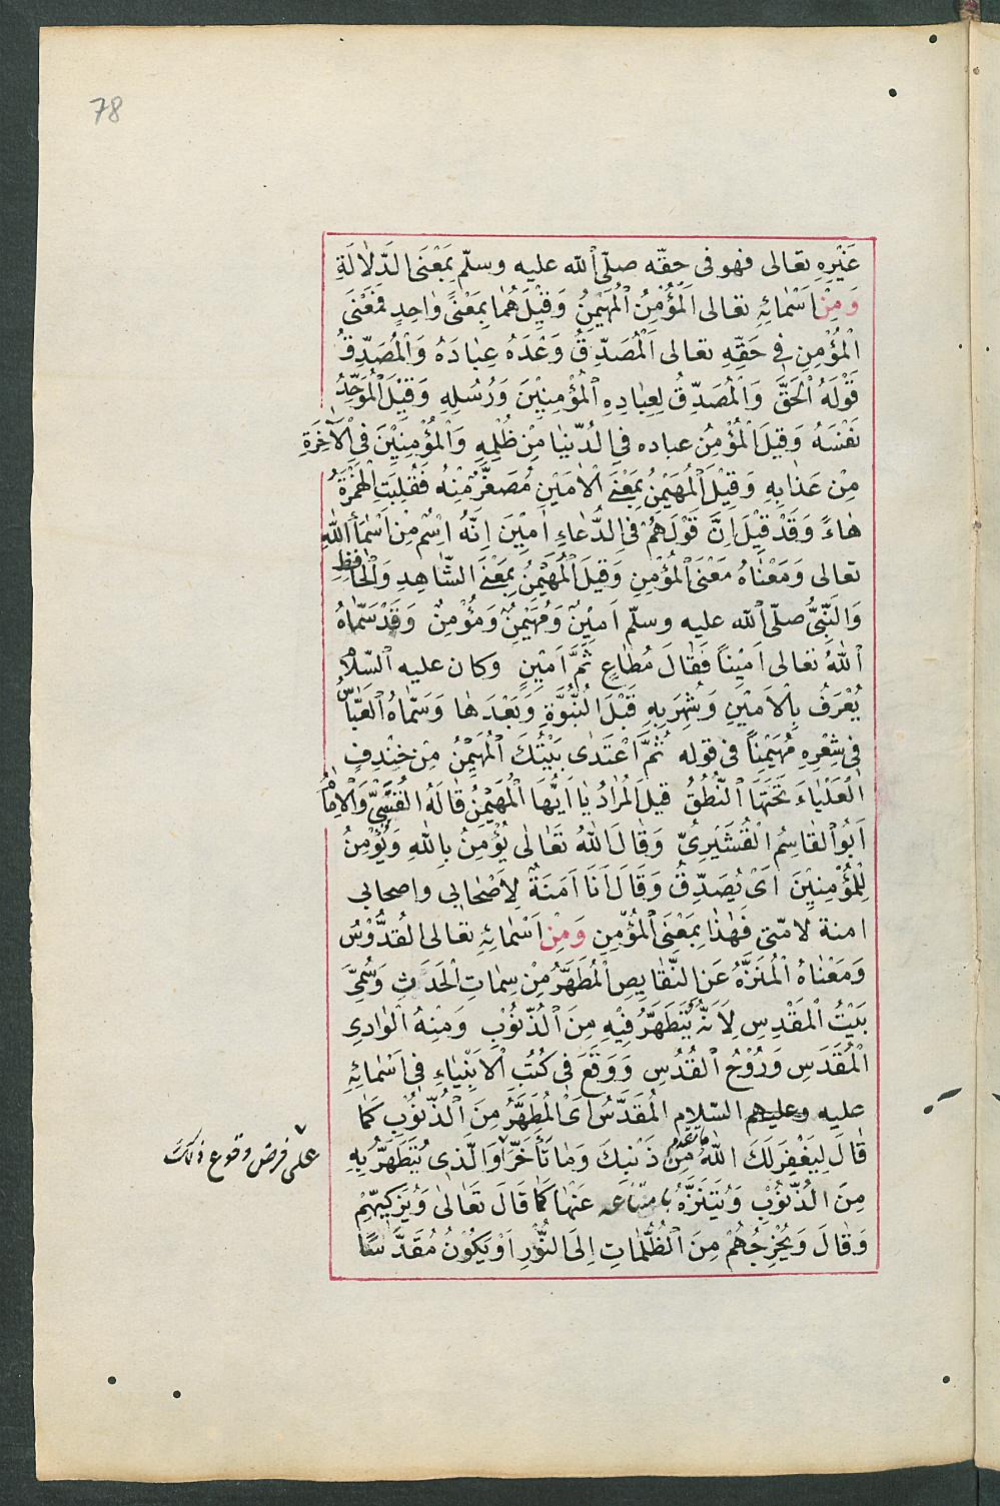 78
غَيْرِهِ تعالى فهو فى حقّه صلّى الله عليه وسلّم بِمَعْنَى الدَّلَالَةِ
وَمِنْ اَسْمَائِهِ تعالى اَلْمُؤْمِنُ الْمُهَيْمِنُ وَقِيْلَ هُمَا بِمَعْنًى وَاحِدٍ فَمَعْنَى
الْمُؤْمِنِ فِى حَقِّهِ تعالى اَلْمُصَدِّقُ وَعْدَهُ عِبَادَهُ وَالْمُصَدِّقُ
قَوْلَهُ الْحَقَّ وَالْمُصَدِّقُ لِعِبَادِهِ الْمُؤْمِنِيْنَ وَرُسُلِهِ وَقِيْلَ الْمُوَحِّدُ
نَفْسَهُ وَقِيلَ الْمُؤْمِنُ عباده فى الدُّنْيَا مِنْ ظُلْمِهِ وَالْمُؤْمِنِيْنَ فى الْاٰخِرَةِ
مِنْ عَذَابِهِ وَقِيْلَ الْمُهَيْمِنُ بِمَعْنَى الْاَمِيْنِ مُصَغَّرٌ مِنْهُ فَقُلِبَتِ الْهَمْزَةُ
هَاءً وَقَدْ قِيْلَ اِنَّ قَوْلَهُمْ فِى الدُّعَاءِ اٰمِيْنَ اِنَّهُ اِسْمٌ مِنْ اَسْمَاءِ اللّٰهِ
تعالى وَمَعْنَاهُ مَعْنَى الْمُؤْمِنِ وَقِيلَ الْمُهَيْمِنُ بِمَعْنَى الشَّاهِدِ وَالْحَافِظِ
وَالنَّبِىُّ صلّى الله عليه وسلّم اَمِيْنٌ وَمُهَيْمِنٌ وَمُؤْمِنٌ وَقَدْ سَمَّاهُ
اللّٰهُ تعالى اَمِيْناً فَقَالَ مُطَاعٍ ثَمَّ اَمِيْنٍ وكان عليه السّلام
يُعْرَفُ بِالْاَمِيْنِ وَشُهِرَ بِهِ قَبْلَ النُّبُوَّةِ وَبَعْدَهَا وَسَمَّاهُ الْعَبَّاسُ
فى شِعْرِهِ مُهَيْمِناً فى قوله ثُمَّ اغْتَدٰى بَيْتُكَ الْمُهَيْمِنُ مِنْ خِنْدِفٍ
الْعَلْيَاءَ تَحْتَهَا النُّطُقُ قيل الْمُرَادُ يَا اَيُّهَا الْمُهَيْمِنُ قَالَهُ الْقُتَيْبِىُّ وَالْاِمَامُ
اَبُو الْقَاسِمُ الْقُشَيْرِىُّ وَقَالَ اللّٰهُ تَعَالٰى يُؤْمِنُ بِاللّٰهِ وَيُؤْمِنُ
لِلْمُؤْمِنِيْنَ اَىْ يُصَدِّقُ وَقَالَ اَنَا اَمَنَةٌ لِاَصْحَابِى واصحابى
امنة لامّتى فَهٰذَا بِمَعْنَى الْمُؤْمِنِ وَمِنْ اَسْمَائِهِ تعالى القُدُّوْسُ
وَمَعْنَاهُ الْمُنَزَّهُ عَنِ النَّقَايِصِ الْمُطَهَّرُ مِنْ سِمَاتِ الْحَدَثِ وَسُمِّىَ
بَيْتُ الْمَقْدِسِ لِاَنَّهُ يُتَطَهَّرُ فِيْهِ مِنَ الذُّنُوْبِ وَمِنْهُ الْوَادِى
الْمُقَدَّسِ وَرُوْحُ الْقُدُسِ وَوَقَعَ فى كُتُبِ الْاَنْبِيَاءِ فى اَسْمَائِهِ
عليه وعليهم السّلام الْمُقَدَّسُ اَىْ الْمُطَهَّرُ مِنَ الذُّنُوْبِ كَمَا
قَالَ لِيَغْفِرَ لَكَ اللّٰهُ مَا تقدّم مِنْ ذَنْبِكَ وَمَا تَأَخَّرَ اَوِ الَّذِى يُتَطَهَّرُ بِهِ
على فرض وقوع ذلك
مِنَ الذُّنُوْبِ وَيُتَنَزَّهُ باتباعه عَنْهَا كَمَا قَالَ تَعَالٰى وَيُزَكِّيْهِمْ
وَقَالَ وَيُخْرِجُهُمْ مِنَ الظُّلُمَاتِ اِلَى النُّوْرِ اَوْ يَكُوْنُ مُقَدَّسًا